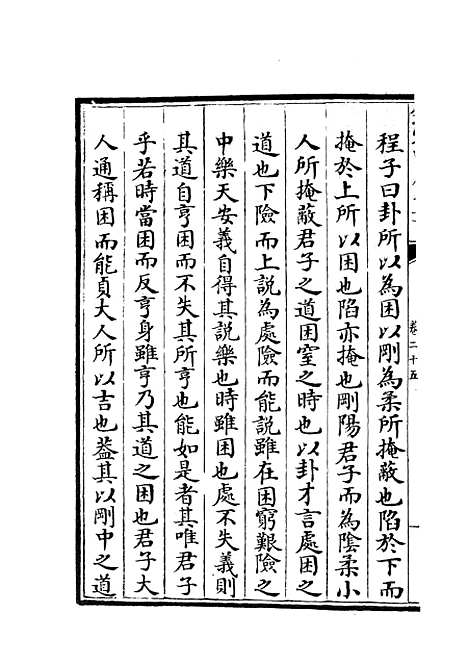 程子曰卦所以為困以剛為柔所掩蔽也陷於下而
掩於上所以困也陷亦掩也剛陽君子而為陰柔小
人所掩蔽君子之道困窒之時也以卦才言處困之
道也下險而上說為處險而能說雖在困窮艱險之
中樂天安義自得其説樂也時雖困也處不失義則
其道自亨困而不失其所亨也能如是者其唯君子
乎若時當困而反亨身雖亨乃其道之困也君子大
人通稱困而能貞大人所以吉也蓋其以剛中之道
卷二十五